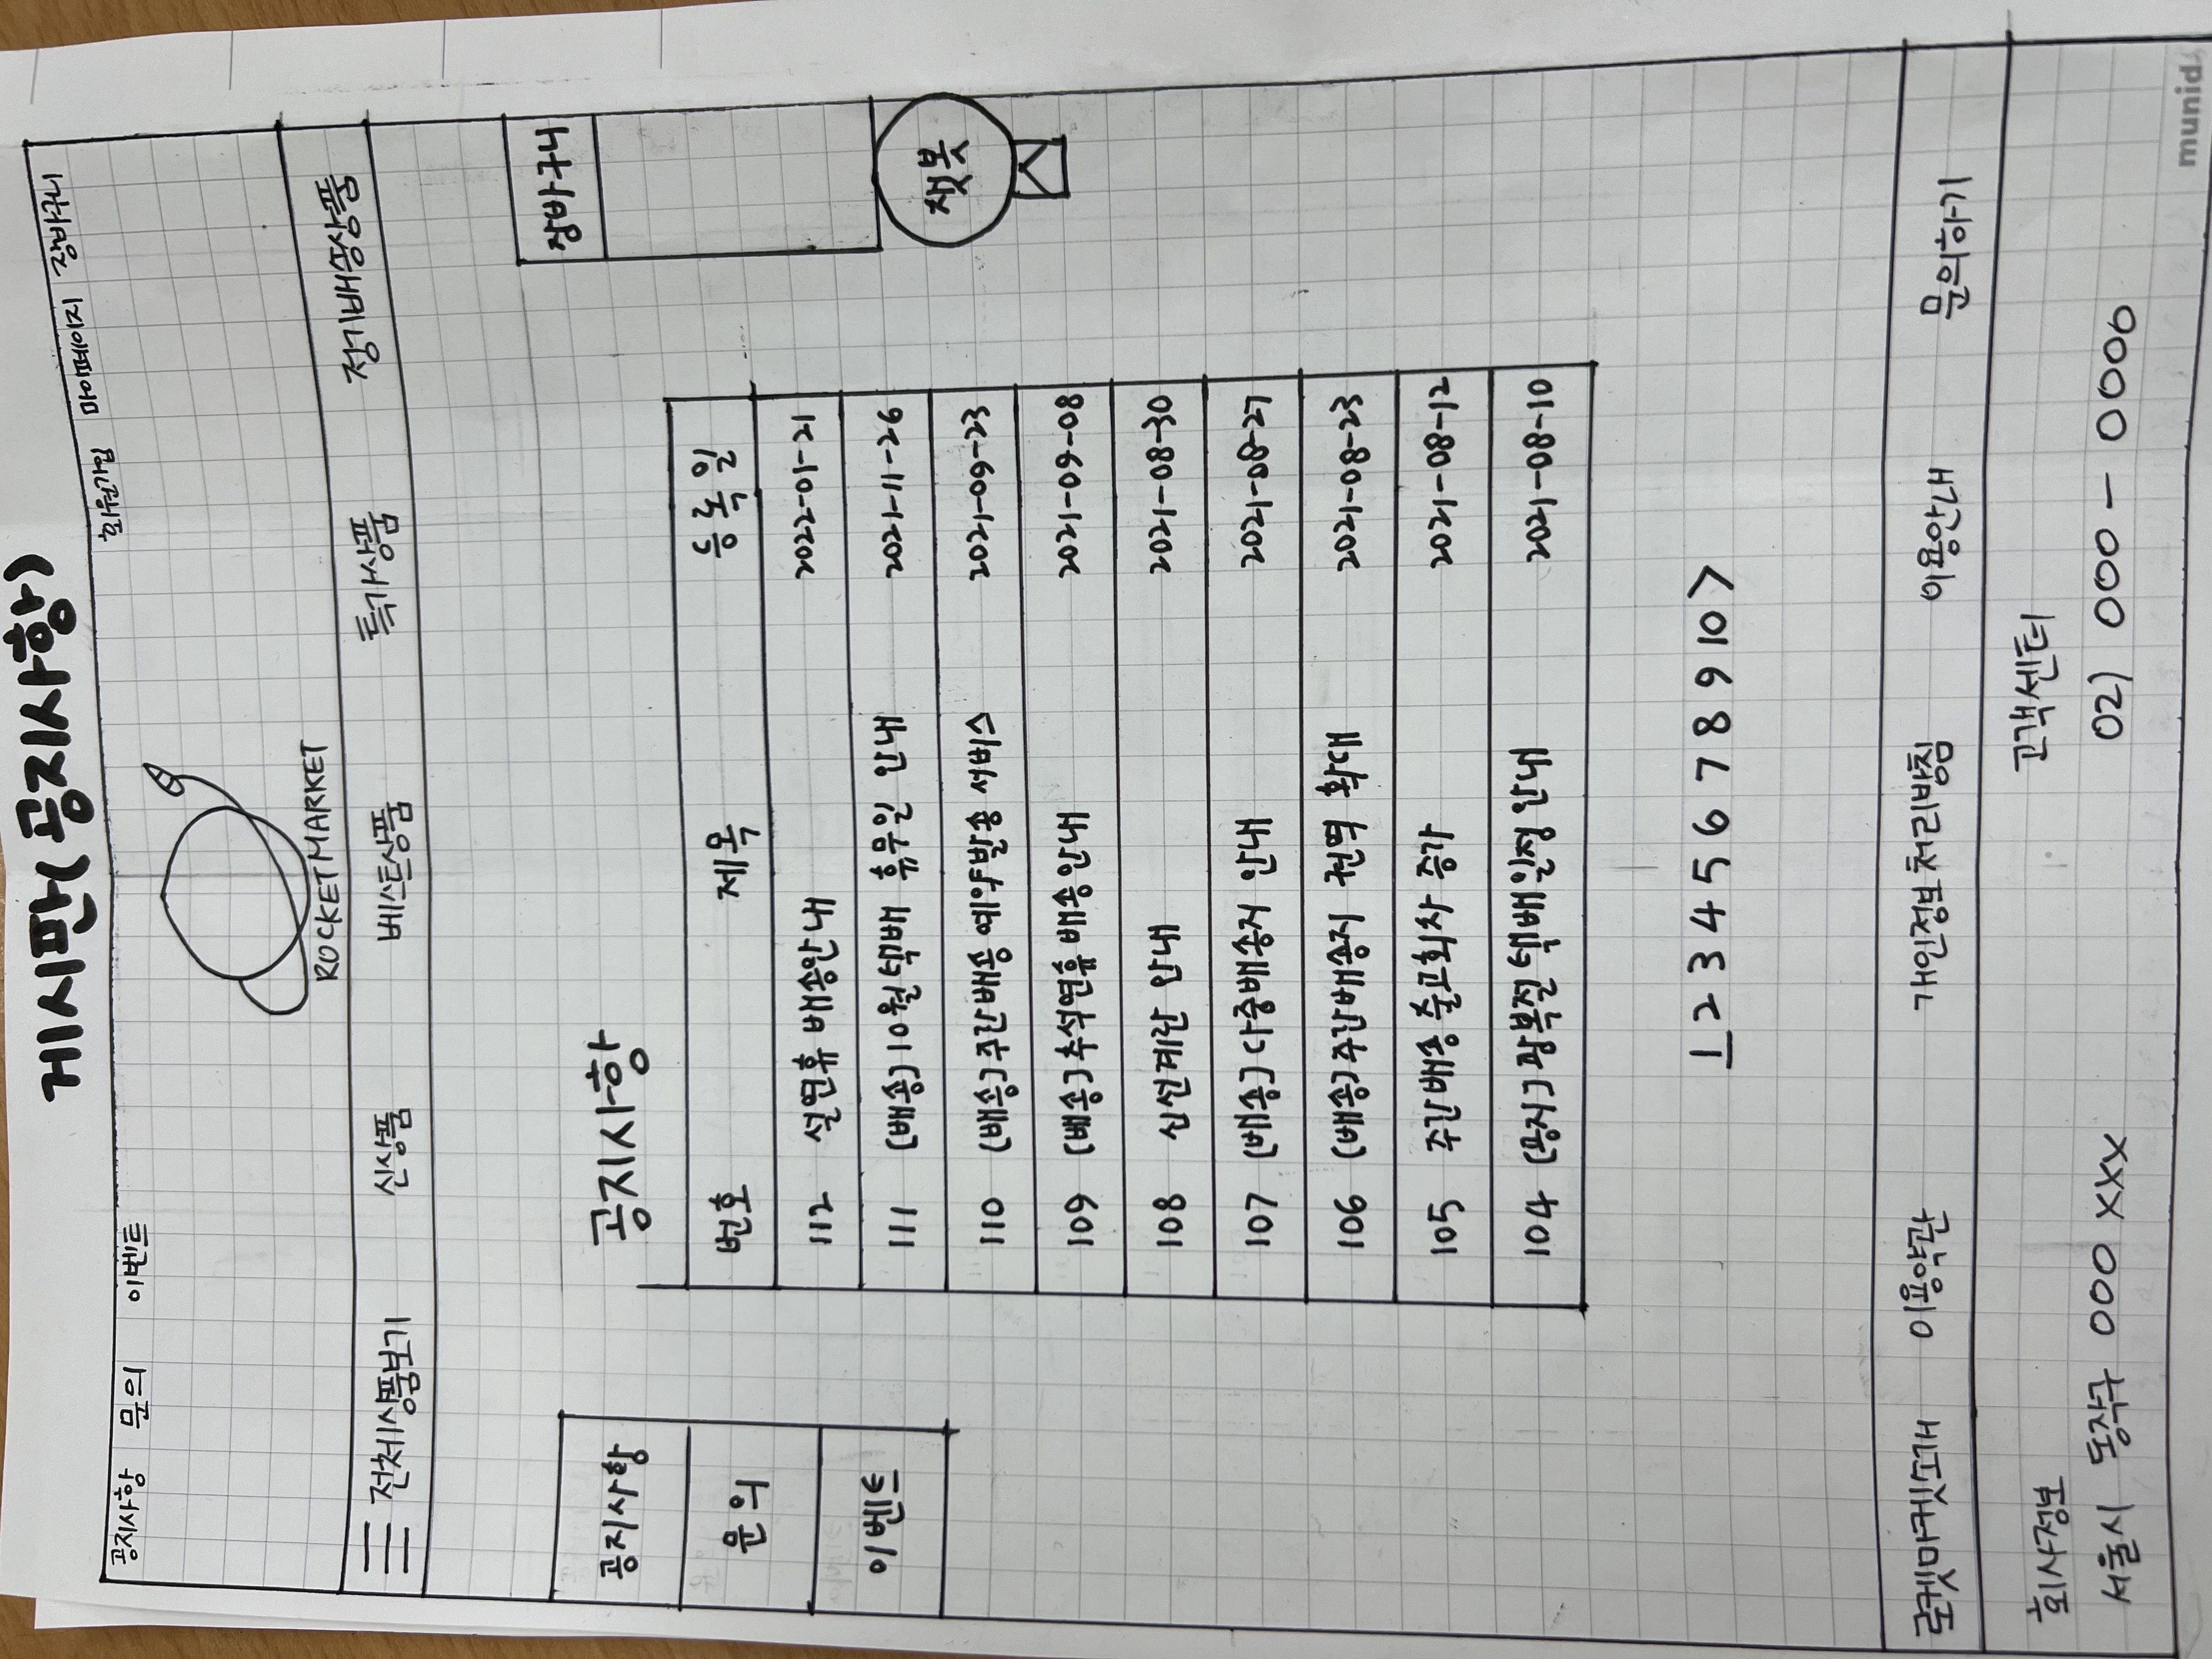 게시판(공지사항)
공지사항 문의 이벤트 회원가입 마이페이지 장바구니
ROCKETMARKET
전체상품보기 신상품 베스트상품 특가상품 정기배송상품
장바구니
공지사항
문의
이벤트
챗봇
공지사항
번호 제목 등록일
112 설연휴 배송안내 2022-01-21
111 [배송] 10월 택배 휴무일 안내 2021-11-26
110 [배송] 주간배송 예약발송 서비스 2021-09-23
109 [배송] 추석연휴 배송안내 2021-09-08
108 신선계란 안내 2021-08-30
107 [배송] 다중배송지 안내 2021-08-27
106 [배송] 주간배송지 권역 확대 2021-08-23
105 주간배송 출고회차 증가 2021-08-12
104 [공지] 광복절 택배일정 안내 2021-08-10
1 2 3 4 5 6 7 8 9 10 >
로켓마켓소개 이용약관 개인정보처리방침 이용안내 문의하기
회사정보 고객센터
서울시 동작구 000 XXX 02) 000 - 0000
munid